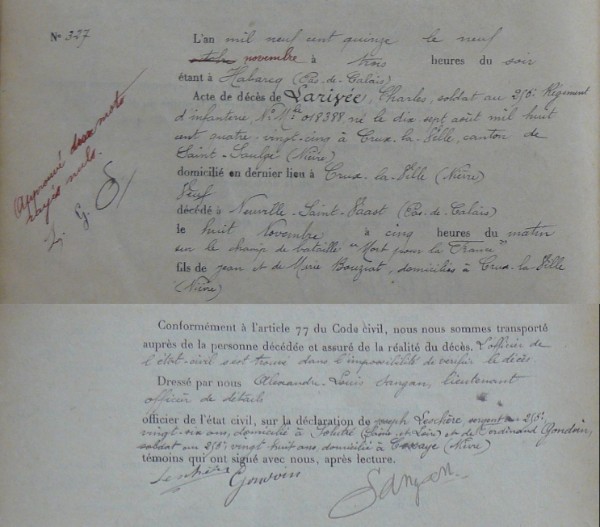 N° 327
L'an mil neuf cent quinze le neuf
octobre novembre à trois heures du soir
étant à Habarcq (Pas-de-Calais)
Acte de décès de Larivée, Charles, soldat au 256e Régiment
d'infanterie N° Mle 018388 né le dix sept août mil huit
cent quatre-vingt-cinq à Crux-la-Ville, canton de
Saint-Saulge (Nièvre)
domicilié en dernier lieu à Crux-la-Ville (Nièvre)
décédé à Neuville-Saint-Vaast (Pas-de-Calais)
le huit Novembre à cinq heures du matin
sur le champ de bataille "Mort pour la France"
fils de Jean et de Marie Bouziat, domiciliés à Crux-la-Ville
(Nièvre)
Approuvé deux mots
rayés nuls.
L. G.
Conformément à l'article 77 du Code civil, nous nous sommes transporté
auprès de la personne décédée et assuré de la réalité du décès. L'officier de
l'état-civil s'est trouvé dans l'impossibilité de vérifier le décès
Dressé par nous Alexandre-Louis Sangan, lieutenant
officier de détails
officier de l'état civil, sur la déclaration de Joseph Leschère sergent au 256e
vingt-six ans, domicilié à Solutré (Saône-et-Loire) et de Ferdinand Gondoin,
soldat au 256e vingt-huit ans, domicilié à (Nièvre)
témoins qui ont signé avec nous, après lecture.
Sangan.